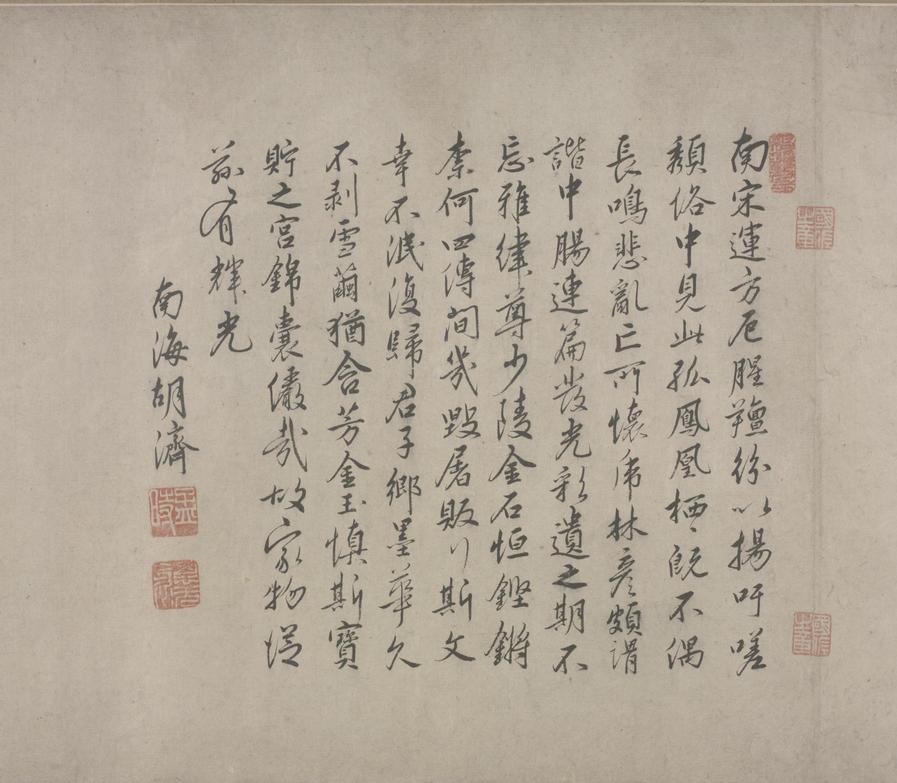 南宋連方厄腥羶紛以揚吁嗟
頹俗中見此孤鳳凰栖〻既不偶
長鳴悲亂亡所懷席林彥頗謂
諧中腸連篇發光彩遺之期不
忘雅律尊少陵金石恒鏗鏘
柰何四傳间幾毀屠販行斯文
幸不泯復歸君子鄉墨華久
不剥雪繭猶含芳金玉慎斯寶
貯之宫錦囊儆哉故家物
益有輝光
南海胡濟